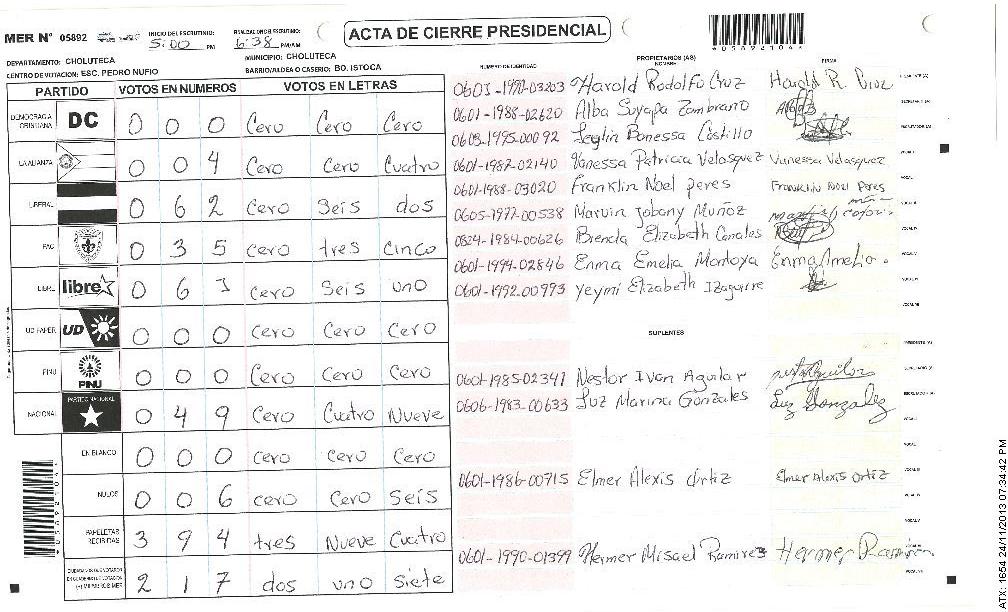 MER N° 05892
INICIO DEL ESCRUTINIO: 5:00 PM
FINALIZACION DEL ESCRUTINIO: 6:38 PM/AM
ACTA DE CIERRE PRESIDENCIAL
DEPARTAMENTO: CHOLUTECA
MUNICIPIO: CHOLUTECA
CENTRO DE VOTACION: ESC. PEDRO NUFIO
BARRIO/ALDEA O CASERIO: BO. ISTOCA
PARTIDO VOTOS EN NUMEROS VOTOS EN LETRAS
DEMOCRACIA CRISTIANA DC 0 0 0 Cero Cero Cero
LA ALIANZA 0 0 4 Cero Cero Cuatro
LIBERAL 0 6 2 Cero Seis dos
PAC 0 3 5 Cero tres Cinco
LIBRE libre 0 6 1 Cero Seis uno
UD FAPER UD 0 0 0 Cero Cero Cero
PINU PINU 0 0 0 Cero Cero Cero
NACIONAL PARTIDO NACIONAL 0 4 9 Cero Cuatro Nueve
EN BLANCO 0 0 0 Cero Cero Cero
NULOS 0 0 6 Cero Cero Seis
PAPELETAS RECIBIDAS 3 9 4 tres Nueve Cuatro
2 1 7 dos uno siete
PROPIETARIOS (AS)
NUMERO DE IDENTIDAD NOMBRE FIRMA
0601-1990-03203 Harold Rodolfo Cruz Harold R. Cruz
0601-1988-02620 Alba Suyapa Zambrano
0603-1995-00092 Costillo
0601-1987-02140 Vanessa Patricia Velasquez Vanessa Velasquez
0601-1988-03020 Franklin Noel peres Franklin Noel Peres
0605-1977-00538 Marvin Jobany Muñoz
0824-1984-00626 Brenda Elizabeth Canales
0601-1994-02846 Enma Emelia Montoya Enma Amelia.
0601-1992-00993 Yeymi Elizabeth Izaguirre
SUPLENTES
0601-1985-02341 Nestor Ivan Aguilar
0606-1983-00633 Luz Marina Gonzales Luz Gonzalez
0601-1986-00715 Elmer Alexis Ortiz Elmer Alexis Ortiz
0601-1990-01399 Hermer Misael Ramirez Hermer
ATX: 1654 24/11/2013 07:34:42 PM